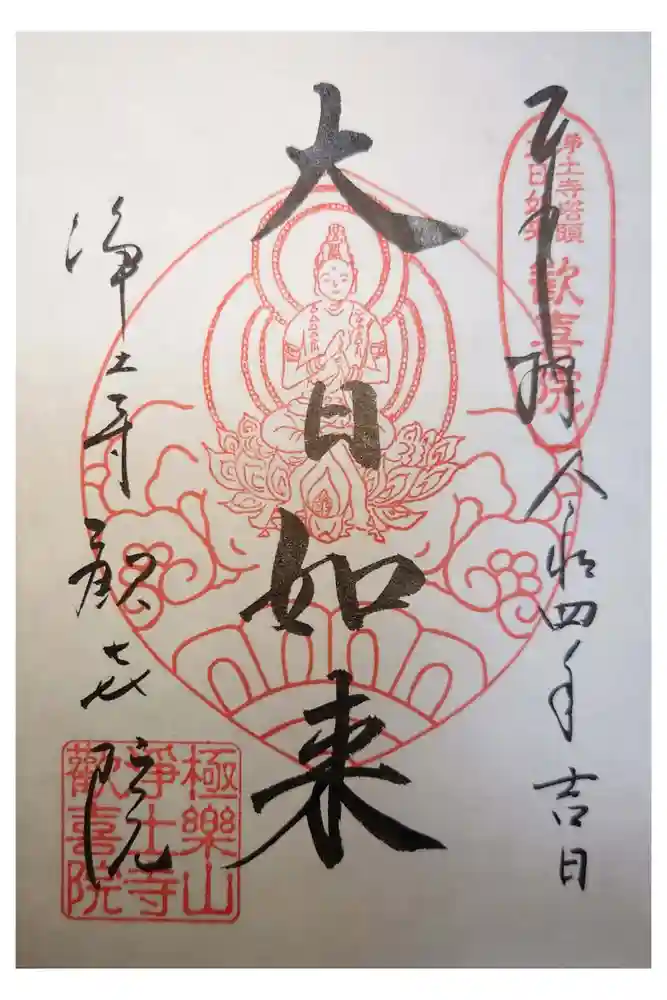 奉拝 令和四年吉日
浄土寺塔頭
大日如来
歓喜院
大日如来
浄土寺 歓喜院
極樂山
淨土寺
歡喜院